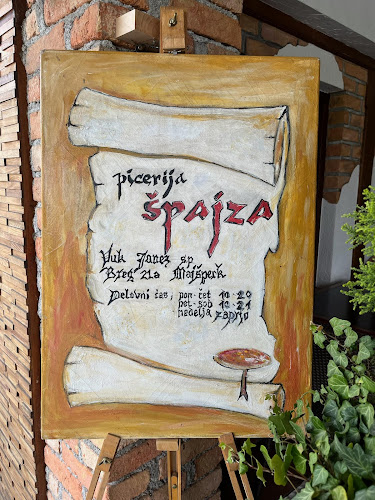 picerija
špajza
Vuk Janez sp
Breg 21a Majšperk
Delovni čas; pon-čet 10-20
pet-sob 10-21
nedelja zaprto